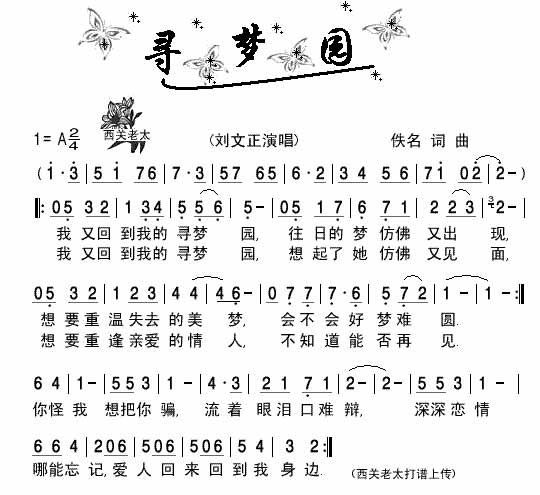 寻梦园
西关老太
1=A2/4 (刘文正演唱) 佚名 词 曲
(1·3|51 76|7·3|57 65|6·2|34 56|71 02|2-)
‖:05 32|1 34|5 56|5-|05 17|6 71|2 23|3 2-|
我 又回 到我的 寻梦 园, 往 日的 梦 仿佛 又出 现,
我 又回 到我的 寻梦 园, 想 起了 她 仿佛 又见 面,
05 32|1 23|44|46-|077|7·6|572|1-|1-:‖
想 要重 温失去 的美 梦, 会不 会好 梦难 圆.
想 要重 逢亲爱 的情 人, 不知 道能 否再 见.
64|1-|553|1-|4·3|21 71|2-|2-|553|1-|
你怪 我 想把你 骗, 流着 眼泪 口难 辩, 深深恋 情
664|206|506|506|54|32:‖
哪能忘 记,爱 人 回 来 回 到 我 身 边. (西关老太打谱上传)